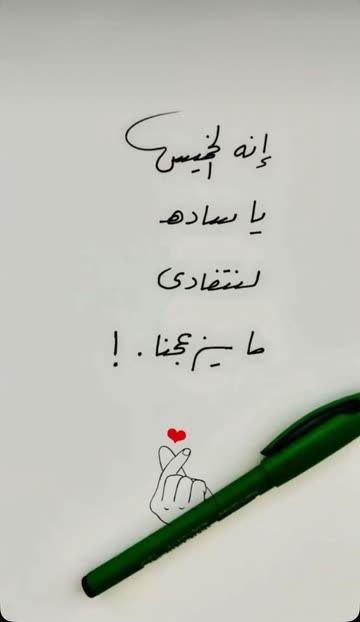 إنه الخميس
يا ساده
لنتفادى
ما يزعجنا . !